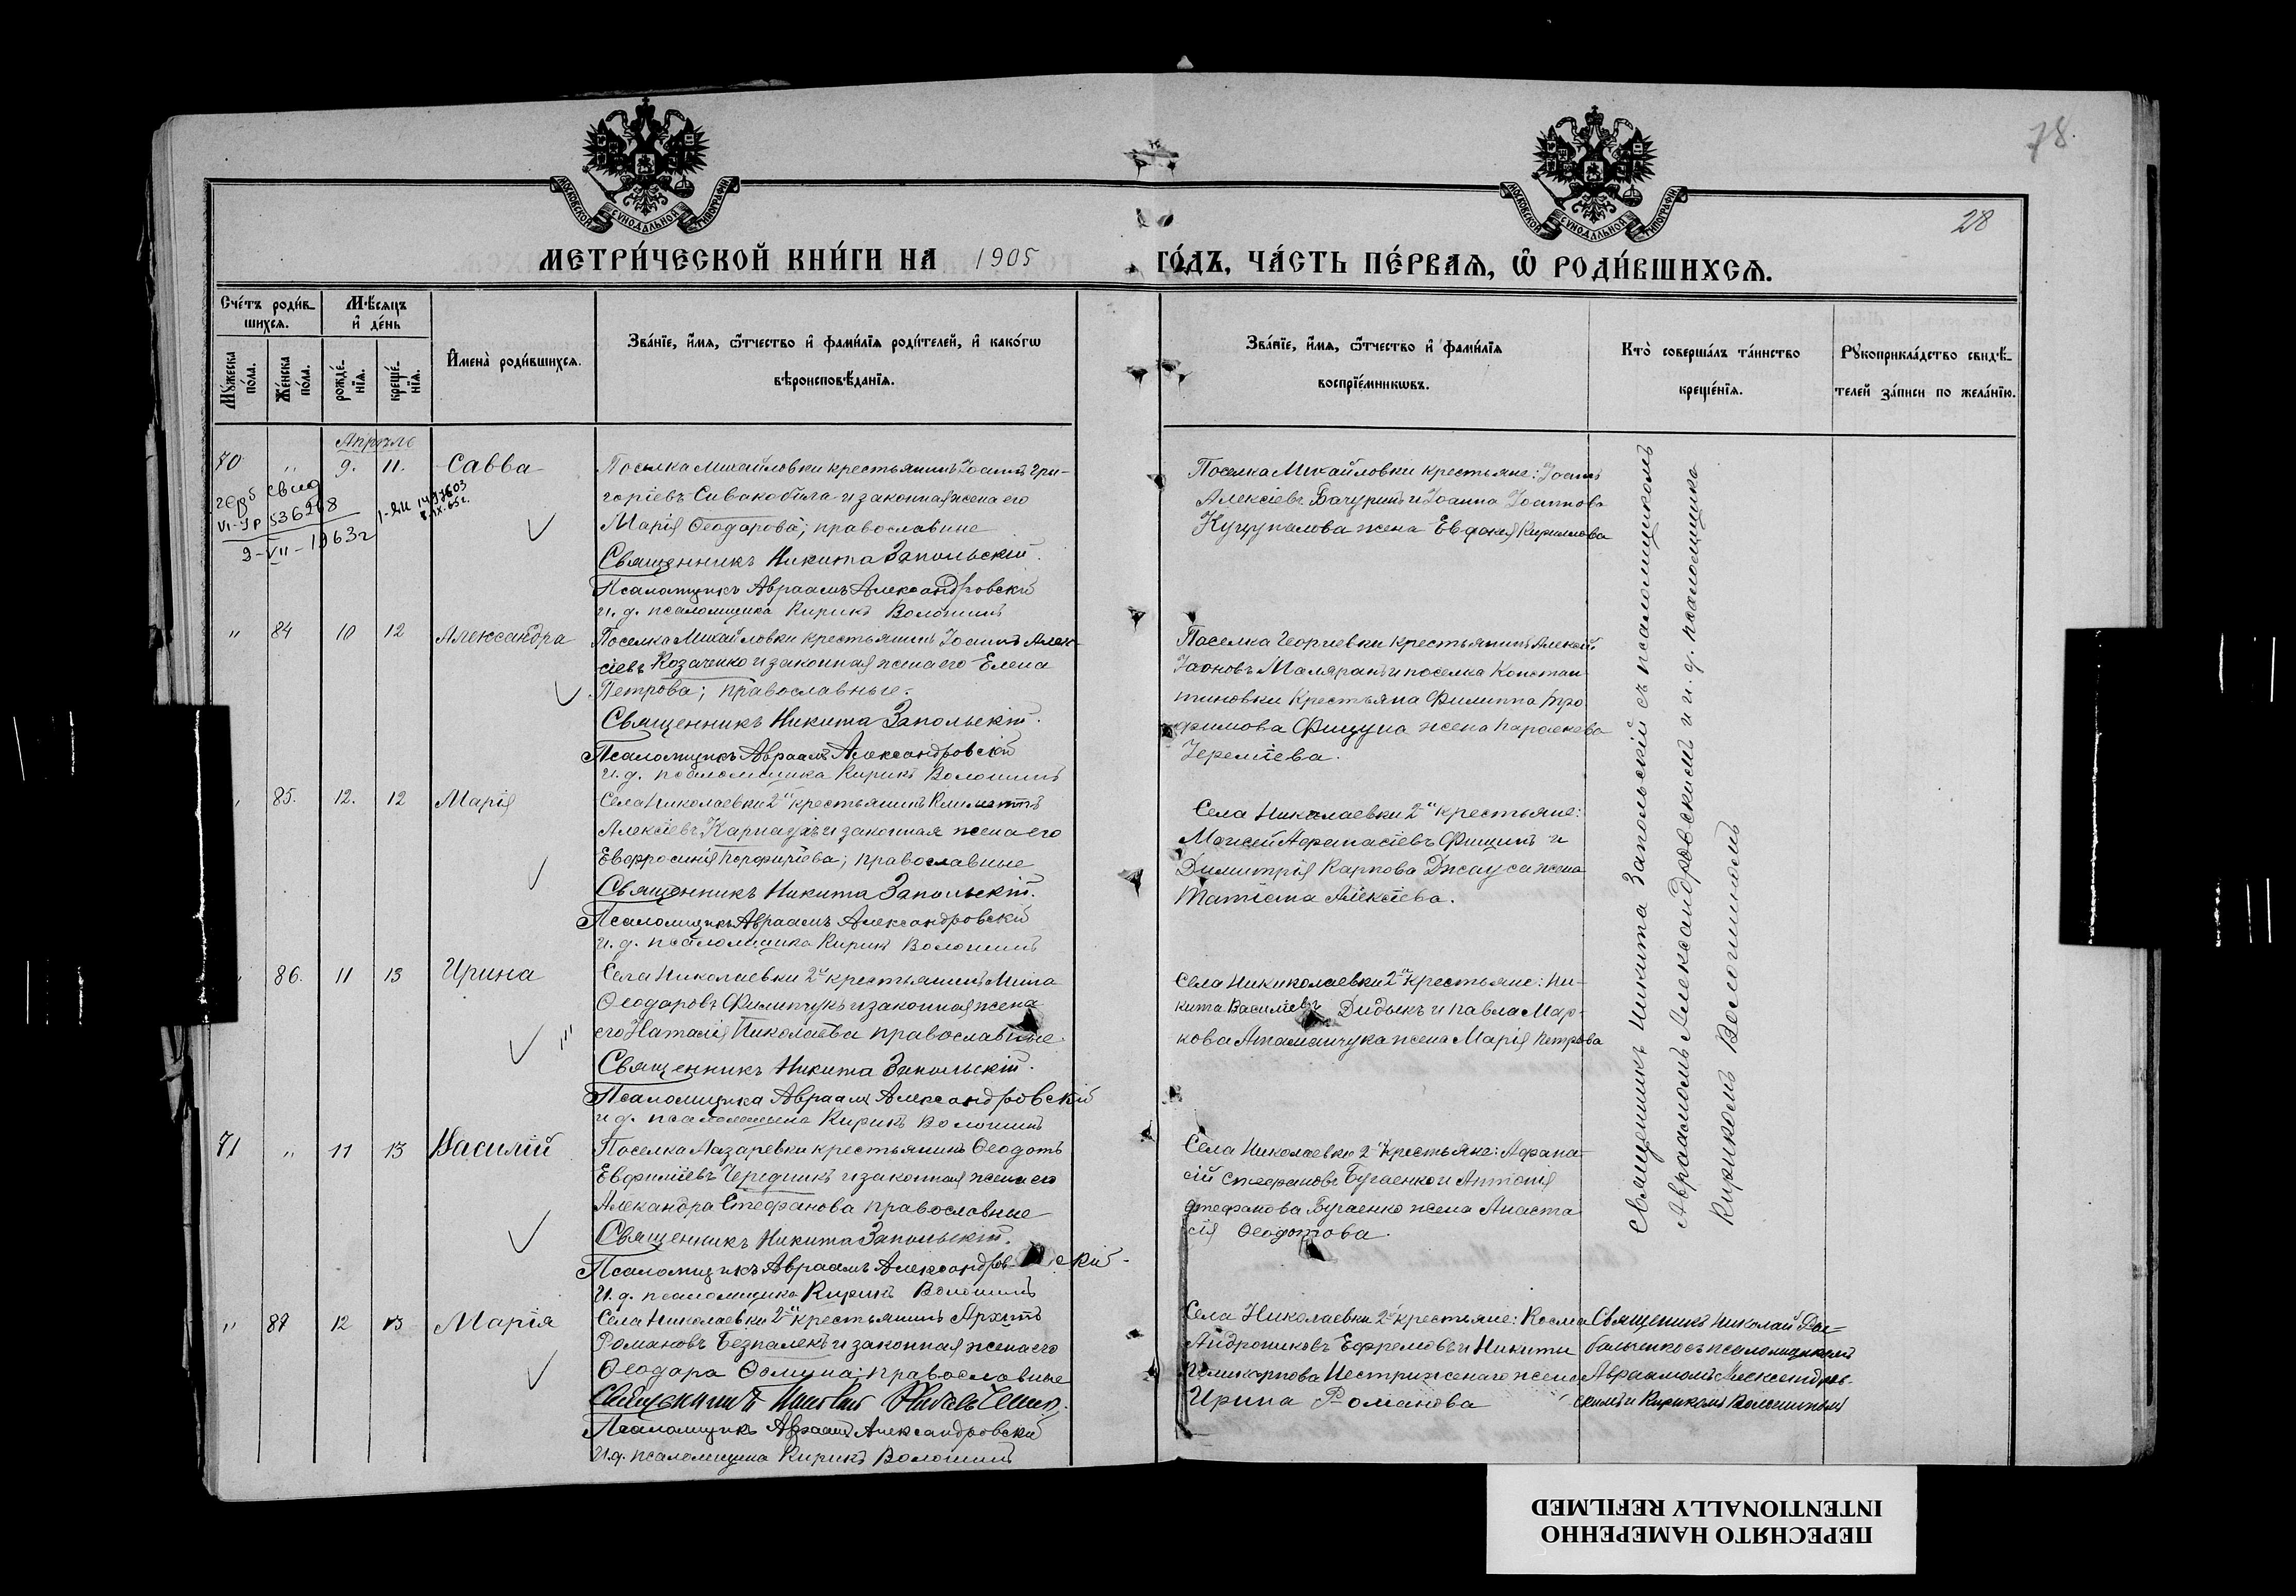 78.
28
МОСКОВСКОЙ СУНОДАЛЬНОЙ ТИПОГРАФІИ
МОСКОВСКОЙ СУНОДАЛЬНОЙ ТИПОГРАФІИ
МЕТРИ́ЧЕСКОЙ КНИ́ГИ НА 1905 ГО́ДЪ, ЧА́СТЬ ПЕ́РВАѦ, Ѡ҆ РОДИ́ВШИХСѦ.
Сче́тъ роди́в-
шихсѧ.
Мѣ́сѧцъ
и҆ де́нь
Мꙋ́жеска по́ла.
Же́нска по́ла.
рожде́-
нїѧ.
креще́-
нїѧ.
И҆мена̀ роди́вшихсѧ.
Зва́нїе, и҆́мѧ, ѻ҆́тчество и҆ фами́лїѧ роди́телей, и҆ како́гѡ
вѣроисповѣ́данїѧ.
Зва́нїе, и҆́мѧ, ѻ҆́тчество и҆ фами́лїѧ
воспрїе́мникѡвъ.
Кто̀ соверша́лъ та́инство
креще́нїѧ.
Рꙋкоприкла́дство свидѣ́-
телей за́писи по жела́нїю.
Апрѣль
70 " 9. 11. Савва
герб свид
VI-ЯР 536268
9-VII-1963г
Поселка Михайловки крестьянинъ Іоаннъ Гри-
горіевъ Сивакобыла и законная жена его
Марія Ѳеодорова; православные
Священникъ Никита Запольскій.
Псаломщикъ Авраамъ Александровскій
и. д. псаломщика Кирикъ Волошинъ
Поселка Михайловки крестьяне: Іоаннъ
Алексіевъ Бачуринъ и Іоанна Іоаннова
жена Евдокія Кириллова
" 84 10 12 Александра
Поселка Михайловки крестьянинъ Іоаннъ Алек-
сіевъ Козаченко и законная жена его Елена
Петрова; православные.
Священникъ Никита Запольскій.
Псаломщикъ Авраамъ Александровскій
и. д. псаломщика Кирикъ Волошинъ
Поселка Георгіевки крестьянинъ Алексій
и поселка Констан
тиновки Крестьяна Филиппа Тро
фимова Фицула жена Параскева
Іереміева.
" 85. 12. 12 Марія
Села Николаевки 2й крестьянинъ Климентъ
Алексіевъ Карнаухъ и законная жена его
Евфросинія Порфиріева; православные
Священникъ Никита Запольскій.
Псаломщикъ Авраамъ Александровскій
и. д. псаломщика Кирикъ Волошинъ
Села Николаевки 2й крестьяне:
Моисей Афанасіевъ Фищинъ и
Димитрія Карпова жена
Татіана Алексіева.
" 86. 11 13 Ирина
Села Николаевки 2й крестьянинъ Мина
Ѳеодоровъ Филипчукъ и законная жена
его Наталія Николаева православные.
Священникъ Никита Запольскій.
Псаломщика Авраамъ Александровскій
и. д. псаломщика Кирикъ Волошинъ
Села Никиколаевки 2й крестьяне: Ни-
кита Василіевъ Дидыкъ и Павла Мар-
кова Атаманчука жена Марія Петрова
71 " 11 13 Василій
Поселка Лазаревки крестьянинъ Ѳеодотъ
Евфиміевъ Чередникъ и законная жена его
Алекандра Стефанова православные
Священникъ Никита Запольскій.
Псаломщикъ Авраамъ Александровскій
И. д. псаломщика Кирикъ Волошинъ
Села Николаевки 2й крестьяне: Афана-
сій Стефановъ Бугаенко и Антонія
Стефанова Бугаенко жена Анаста
сія Ѳеодотова.
" 87 12 13 Марія
Села Николаевки 2й крестьянинъ Архипъ
Романовъ Безпалекъ и законная жена его
Ѳеодора Ѳомина; православные
Священникъ
Псаломщикъ Авраамъ Александровскій
И. д. псаломщика Кирикъ Волошинъ
Села Николаевки 2й крестьяне: Косма
Андрониковъ Ефремовъ и Никиты
Поликарпова Нестриженаго жена
Ирина Романова
Священникъ Никита Запольскій съ псаломщикомъ
Авраамомъ Александровскимъ и и. д. псаломщика
Кирикомъ Волошиномъ
Священникъ Николай
съ псаломщикомъ
Авраамомъ Александров-
скимъ и Кирикомъ Волошиномъ
ПЕРЕСНЯТО НАМЕРЕННО
INTENTIONALLY REFILMED